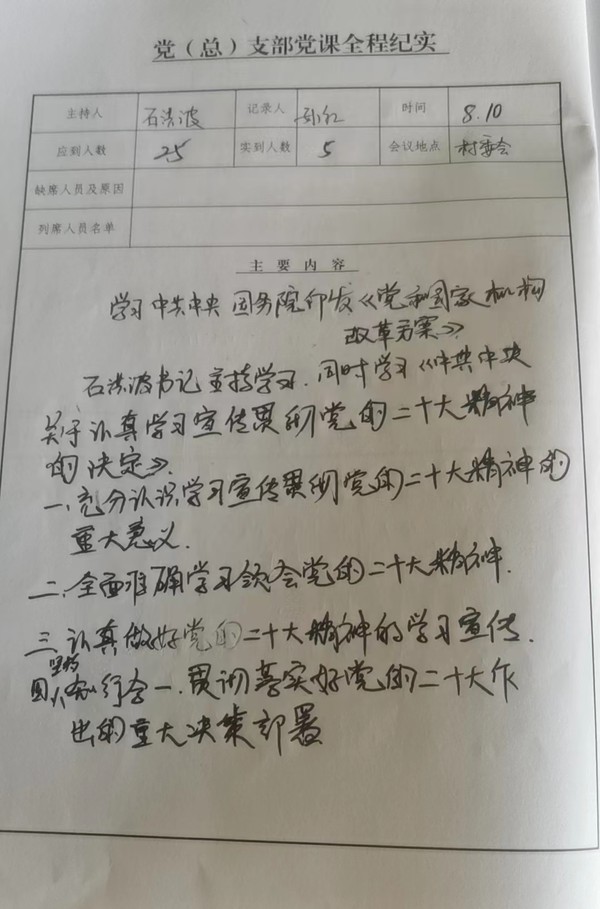 党（总）支部党课全程纪实
主持人 石洪波 记录人 孙红 时间 8.10
应到人数 25 实到人数 5 会议地点 村委会
缺席人员及原因
列席人员名单
主要内容
学习中共中央 国务院印发《党和国家机构
改革方案》
石洪波书记主持学习.同时学习《中共中央
关于认真学习宣传贯彻党的二十大精神
的决定》.
一、充分认识学习宣传贯彻党的二十大精神的
重大意义.
二、全面准确学习领会党的二十大精神.
三、认真做好党的二十大精神的学习宣传.
坚持
知行合一.贯彻落实好党的二十大作
出的重大决策部署